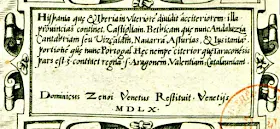 Hispania que & Iberia in Viteriorē diuidit' ac citeriorem: illa
prouincias continet. Castiliam, Bethicam que nunc Andaluzia
Cantabriam seu Vizcaidm, Navarrā Asturias, & Lusitaniȩ
portionē quȩ nunc Portogal. Hȩc nempe citerior que Taraconēsis
pars est & continet regna Aragonem Valentiam Cataluniam.
Dominicus Zenoi Venetus Restituit Venetijs
MDLX